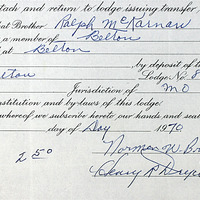 tach and return to lodge issuing transfer
at Brother Ralph McKarnan
a member of Belton
at Belton
by deposit of th
lton Lodge No. 8
Jurisdiction of MO
nstitution and by-laws of this lodge.
whereof we subscribe hereto our hands and seal
day of Day 1970
Norman W. Br
2 50